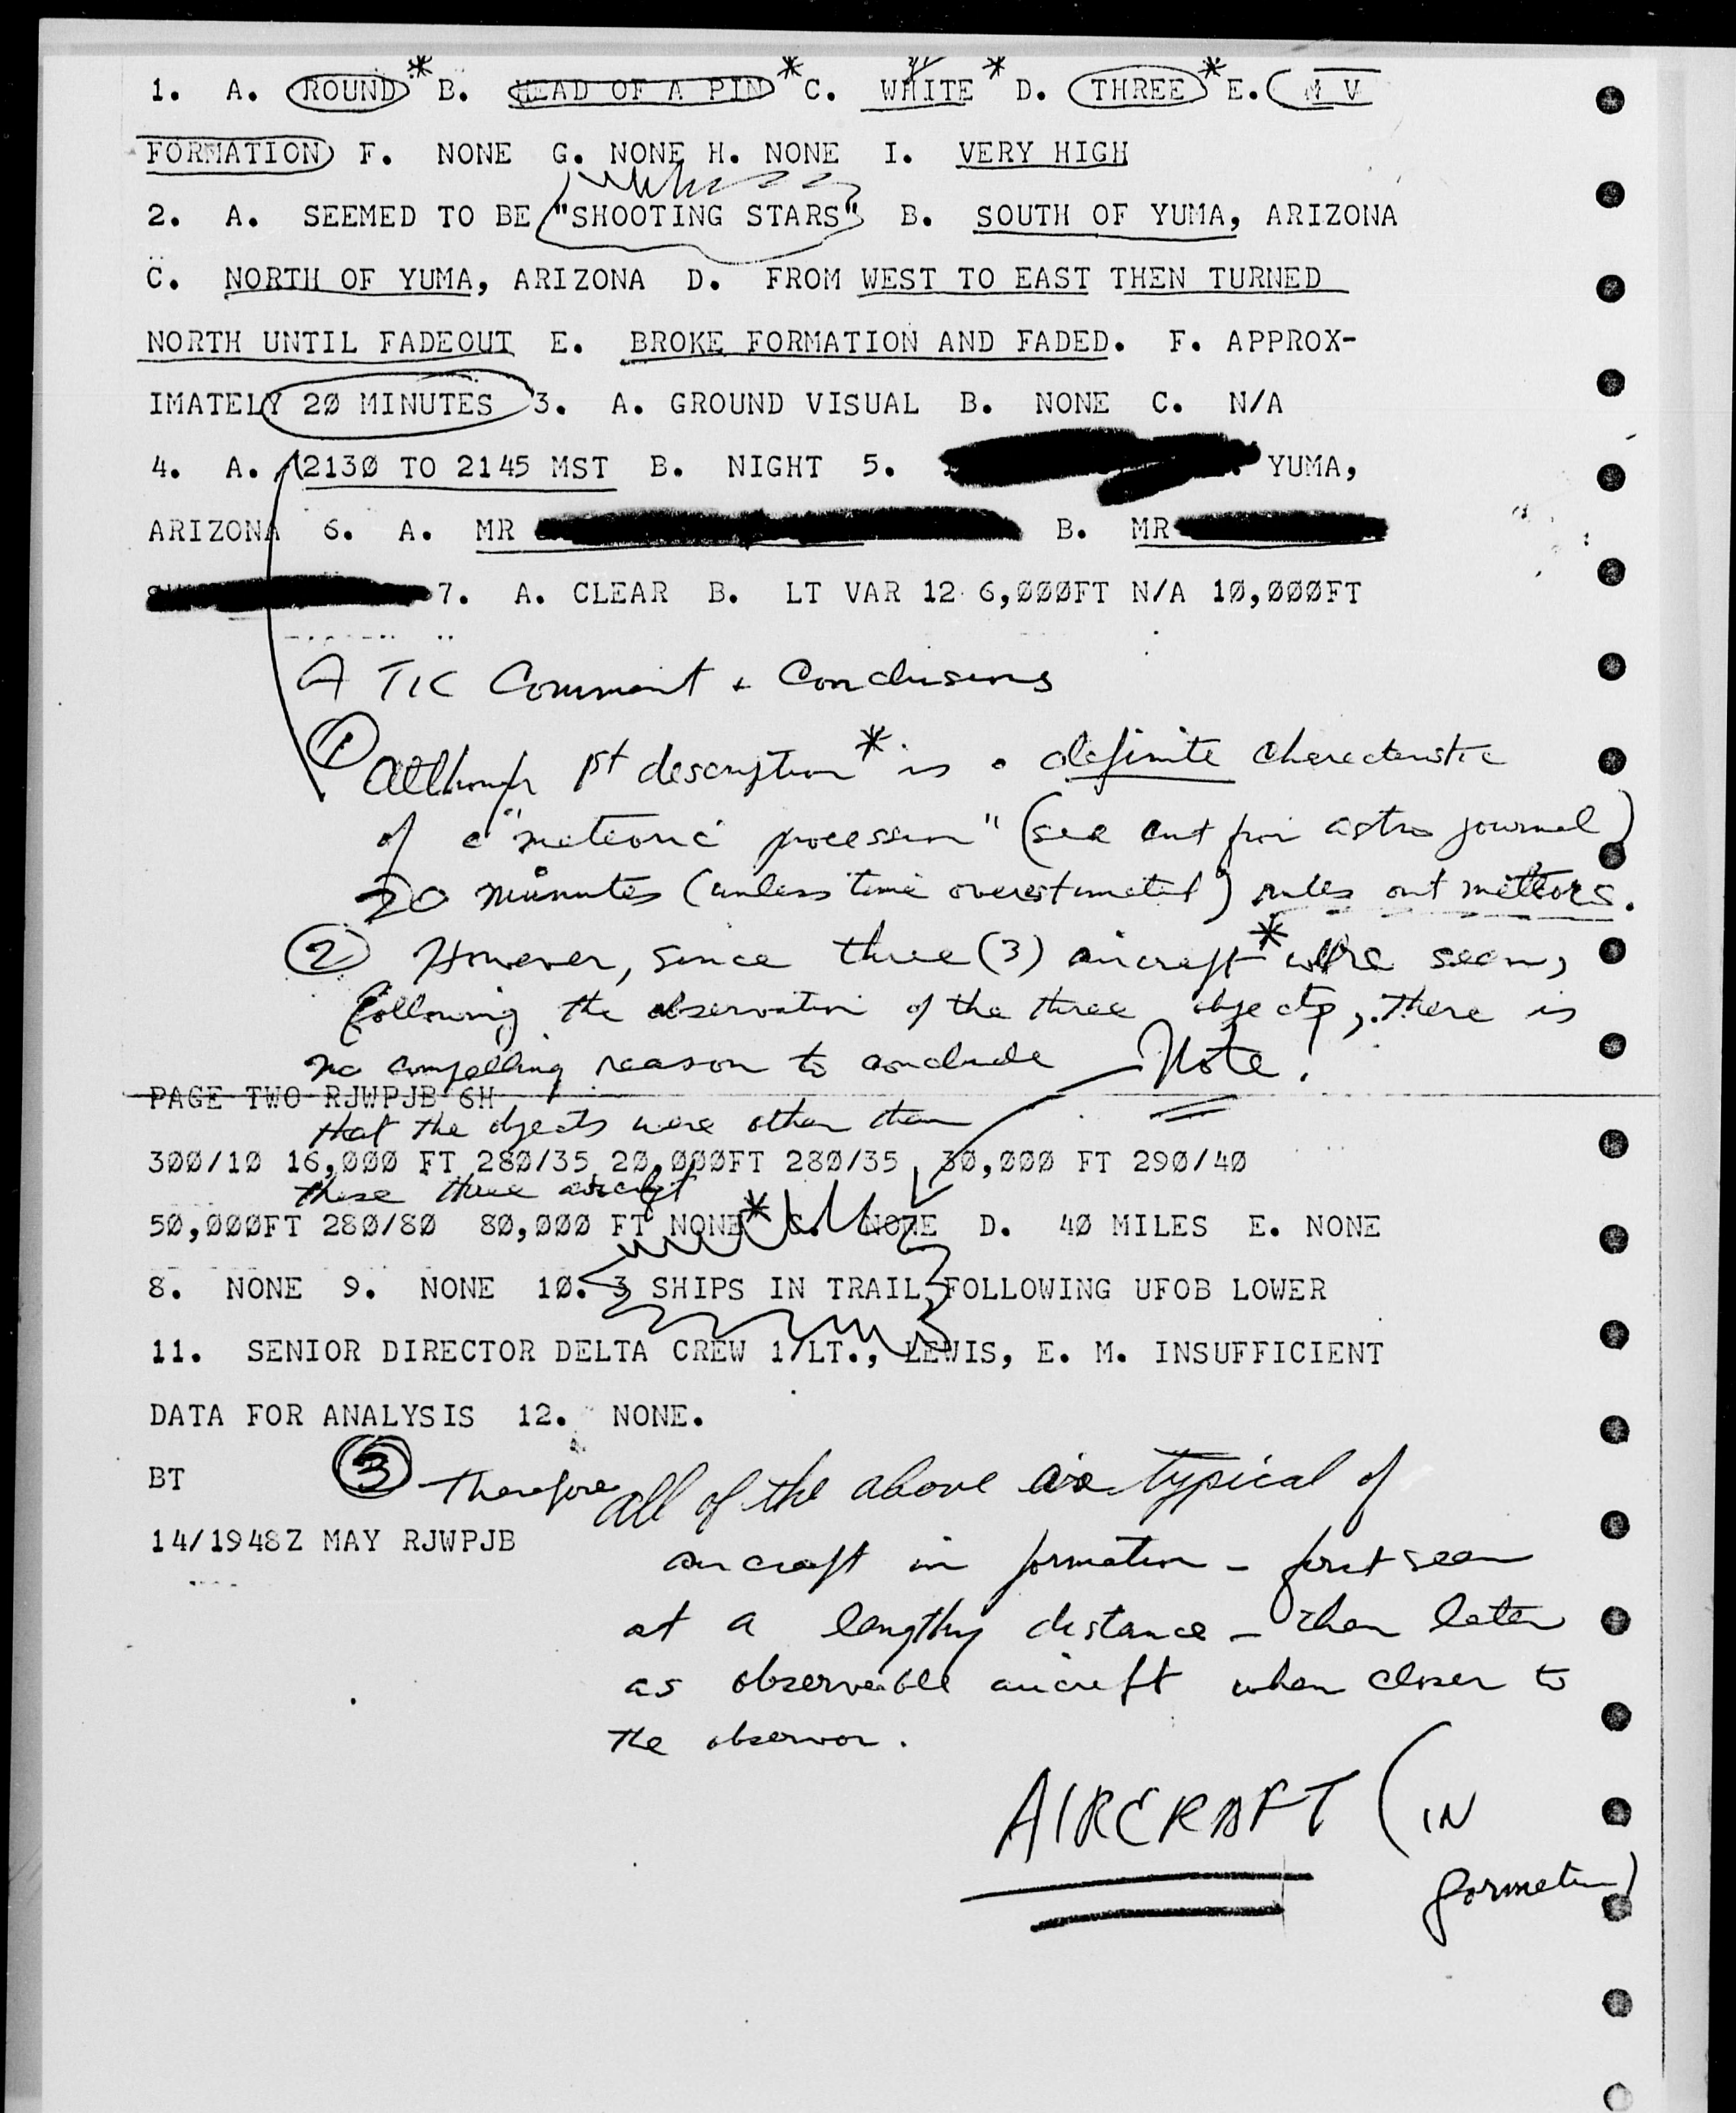 1. A. ROUND * B. HEAD OF A PIN * C. WHITE * D. THREE * E. N V
FORMATION F. NONE G. NONE H. NONE I. VERY HIGH
2. A. SEEMED TO BE "SHOOTING STARS" B. SOUTH OF YUMA, ARIZONA
C. NORTH OF YUMA, ARIZONA D. FROM WEST TO EAST THEN TURNED
NORTH UNTIL FADEOUT E. BROKE FORMATION AND FADED. F. APPROX-
IMATELY 20 MINUTES 3. A. GROUND VISUAL B. NONE C. N/A
4. A. 2130 TO 2145 MST B. NIGHT 5. YUMA,
ARIZONA 6. A. MR B. MR
7. A. CLEAR B. LT VAR 12 6,000FT N/A 10,000FT
ATIC Comment + Conclusions
① Although 1st description * is a definite characteristic
of a "meteoric procession" (see cut from astro journal)
20 minutes (unless time overestimated) rules out metteors.
② However, since three (3) aircraft * were seen,
following the observation of the three objects, there is
no compelling reason to conclude Note!
PAGE TWO RJWPJB 6H
that the objects were other than
300/10 16,000 FT 280/35 20,000FT 280/35 30,000 FT 290/40
these three aircraft
50,000FT 280/80 80,000 FT NONE * C. NONE D. 40 MILES E. NONE
8. NONE 9. NONE 10. 3 SHIPS IN TRAIL FOLLOWING UFOB LOWER
11. SENIOR DIRECTOR DELTA CREW 1/LT., LEWIS, E. M. INSUFFICIENT
DATA FOR ANALYSIS 12. NONE.
BT
③ Therefore all of the above is typical of
14/1948Z MAY RJWPJB
aircraft in formation - first seen
at a lengthy distance - then later
as observeable aircraft when closer to
the observor.
AIRCRAFT (IN
formation)